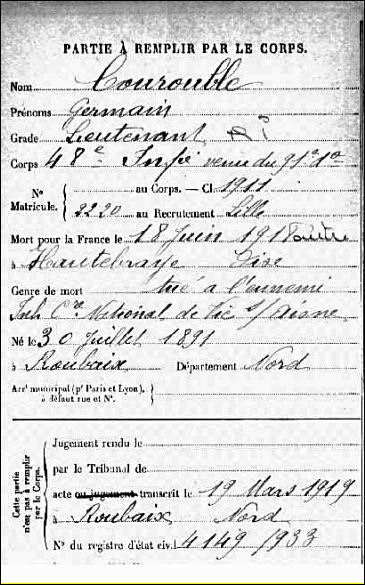 PARTIE À REMPLIR PAR LE CORPS.
Nom Courouble
Prénoms Germain
Grade Lieutenant
Corps 48e Infie venu du 91e
No Matricule. { au Corps. — Cl. 1911
2220 au Recrutement Lille
Mort pour la France le 18 Juin 1918
à Hautebraye Oise
Genre de mort tué à l'ennemi
Inh. Cre National de Vic s/Aisne
Né le 30 Juillet 1891
à Roubaix Département Nord
Arrt municipal (pr Paris et Lyon),
à défaut rue et No.
Cette partie n'est pas à remplir par le Corps.
Jugement rendu le
par le Tribunal de
acte ou jugement transcrit le 19 Mars 1919
à Roubaix Nord
No du registre d'état civil 4149/933